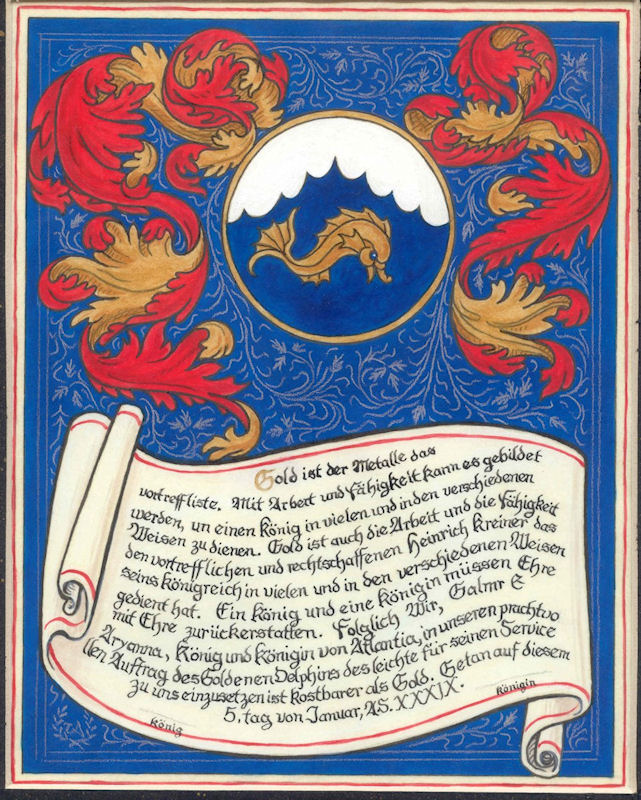 Gold ist der Metalle das
vortreffliste. Mit Arbert und Fähigkeit kann es gebildet
werden, un einen König in vielen und in den verschiedenen
Weisen zu dienen. Gold ist auch die Arbeit und die Fähigkeit
den vortrefflichen und rechtschaffenen Heinrich Kreiner das
seins königreich in vielen und in den verschiedenen Weisen
gedient hat. Ein König und eine königin müssen Ehre
mit Ehre zurückerstatten. Folglich Wir, Galmr &
Aryanna, König und Königin von Atlantia, in unseren prachtvo
llen Auftrag des Goldenen Delphins des leichte für seinen Service
zu uns einzusetzen ist kostbarer als Gold. Getan auf diesem
5. tag von Januar, A.S. XXXIX.
König
Königin